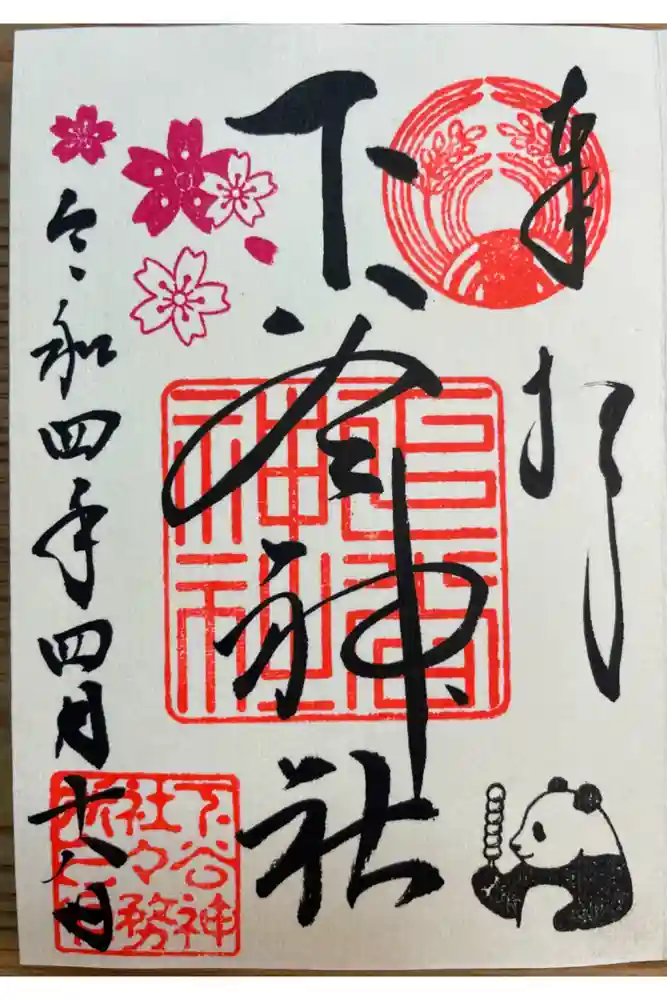 奉拝
下谷神社
令和四年四月十八日
下谷神
社々務
所之印